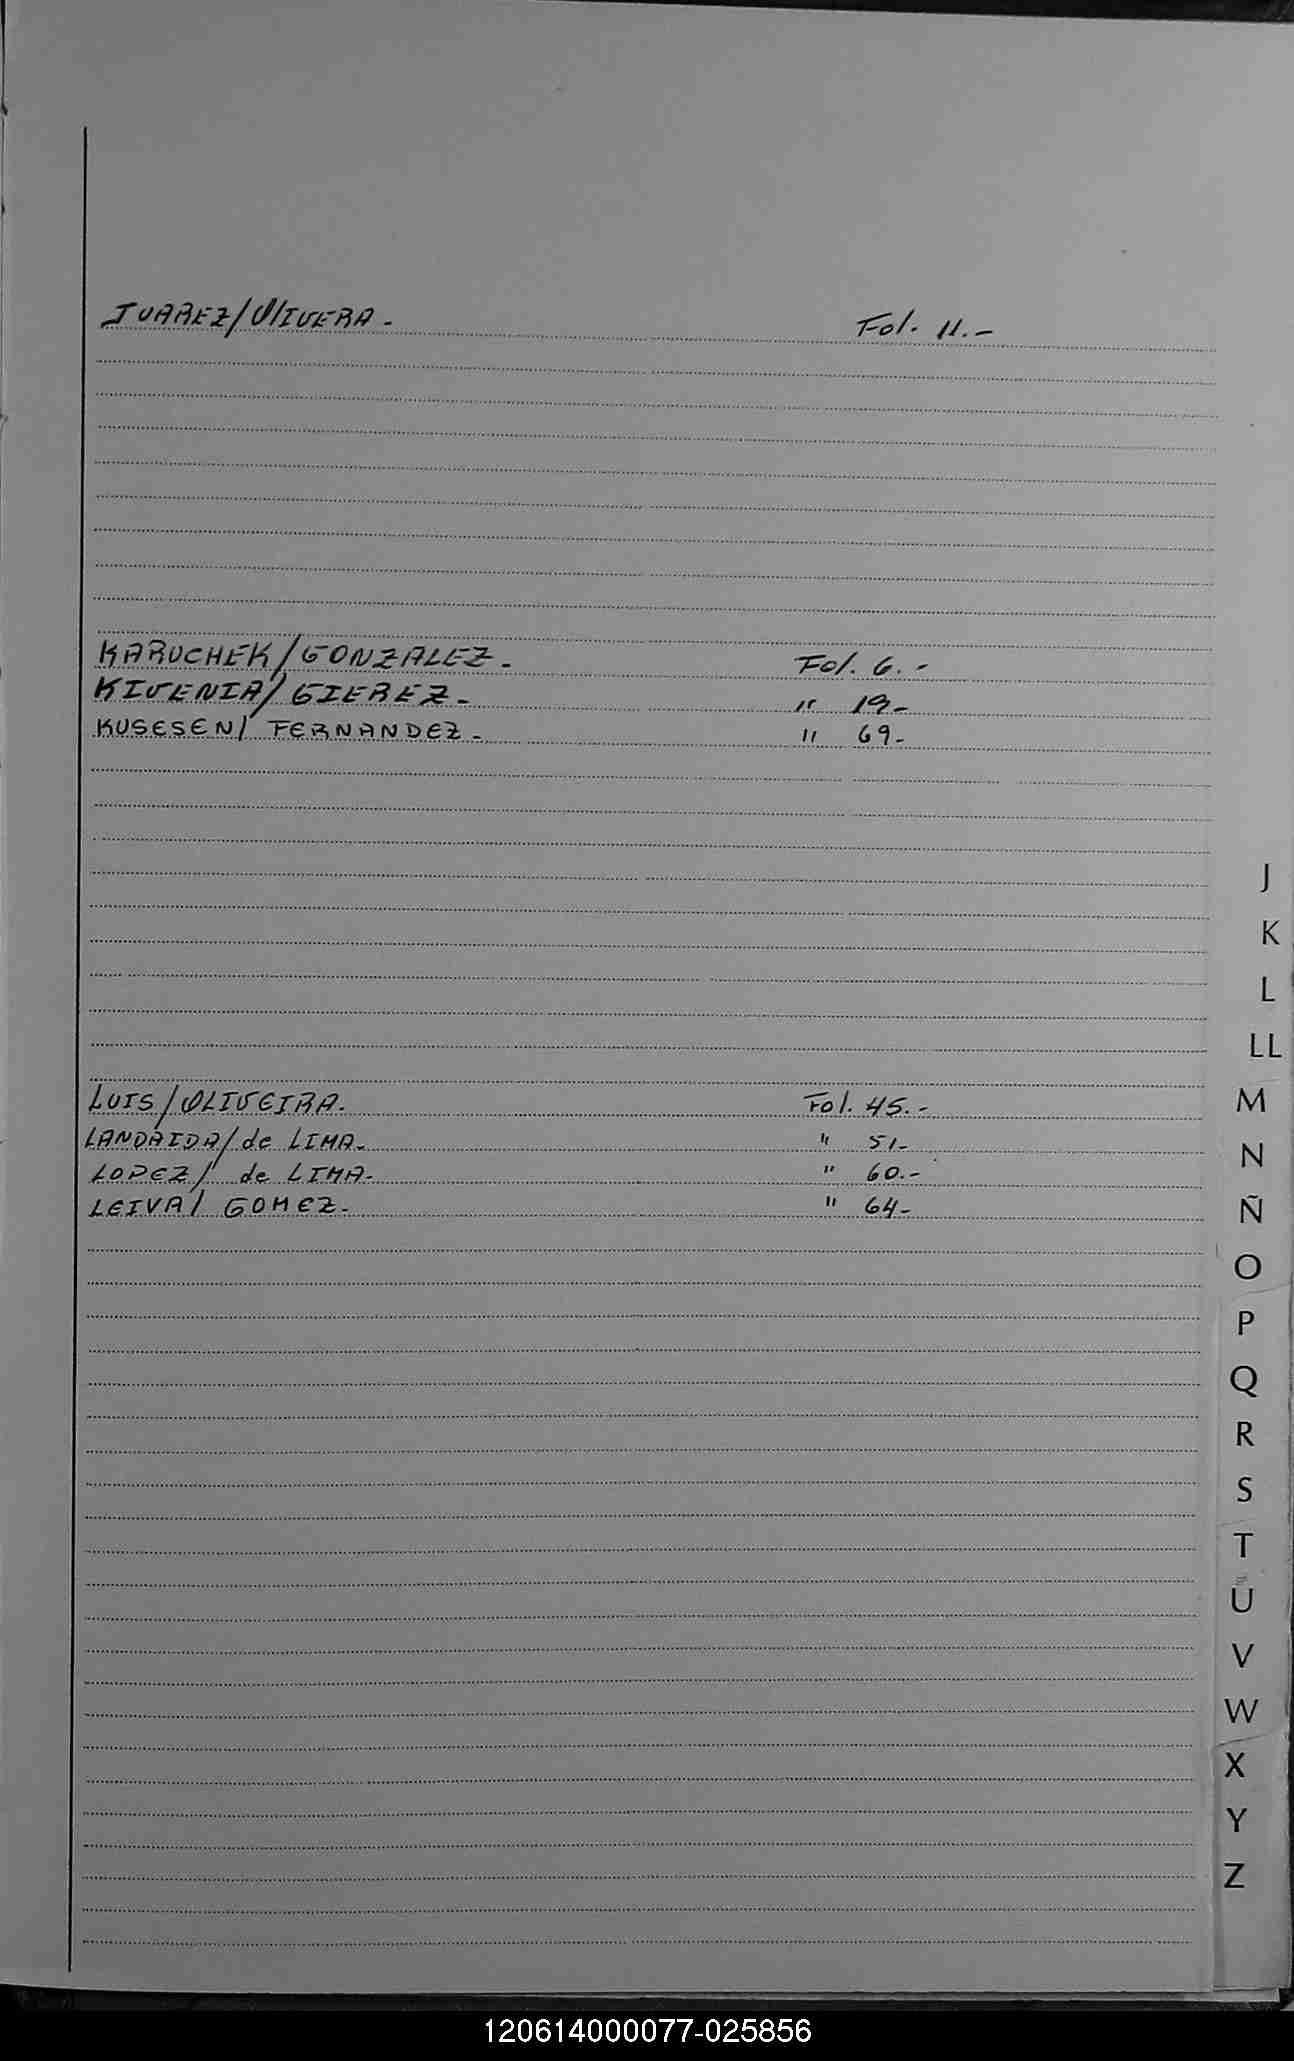 JUAREZ/OLIVERA.- Fol. 11.-
KARUCHEK/GONZALEZ.- Fol. 6.-
KIVENIA/GIEREZ.- " 19-
KUSESEN/ FERNANDEZ.- " 69-
LUIS/OLIVEIRA. Fol. 45.-
LANDAIDA/de LIMA.- " 51-
LOPEZ/ de LIMA.- " 60.-
LEIVA/ GOMEZ.- " 64-
J
K
L
LL
M
N
Ñ
O
P
Q
R
S
T
U
V
W
X
Y
Z
120614000077-025856